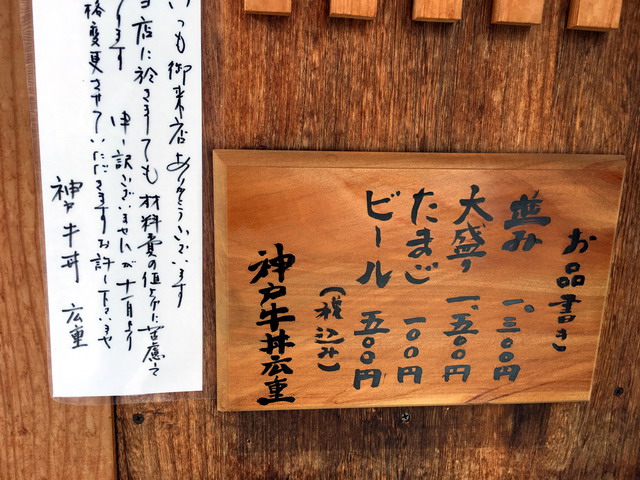 お品書き
並み 一、三〇〇円
大盛り 一、五〇〇円
たまご 一〇〇円
ビール 五〇〇円
(税込み)
神戸牛丼広重
いつも御来店ありがとうございます
当店に於きましても 材料費の値上がりに苦慮して
ります 申し訳ございませんが 十一月より
格変更させていただきますお許し下さいませ
神戸牛丼 広重